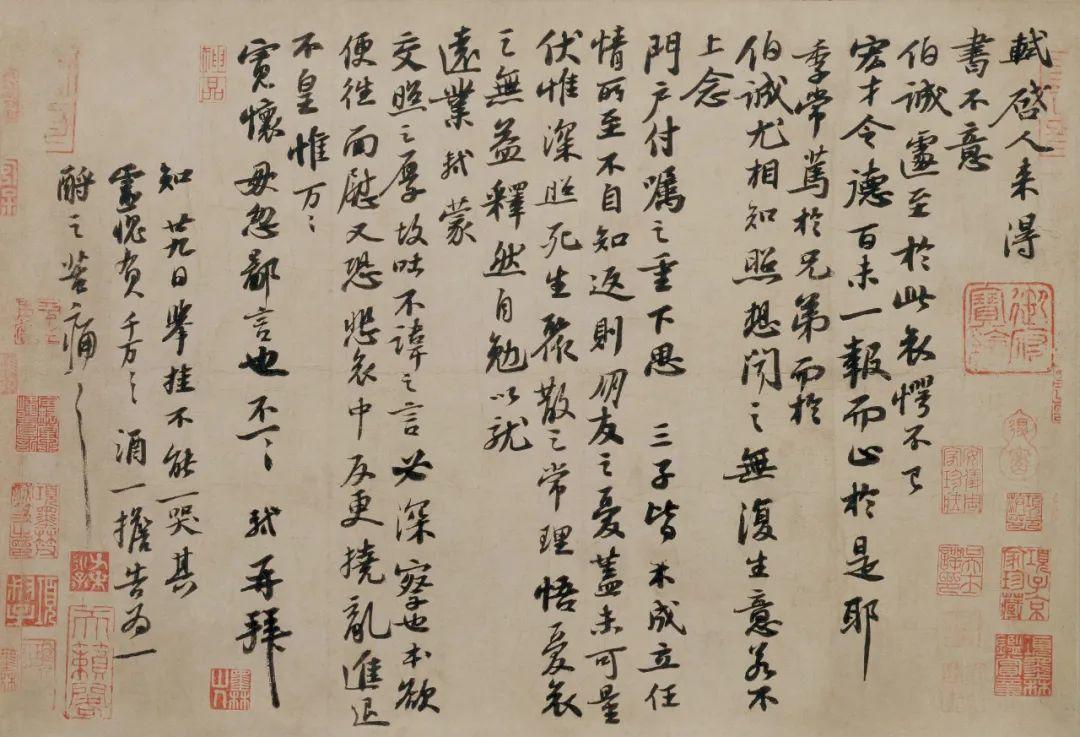 軾啓人来得
書不意
伯誠遽至於此哀愕不已
宏才令德百未一報而止於是耶
季常篤於兄弟而於
伯誠尤相知照想聞之無復生意若不
上念
門户付嘱之重下思三子皆未成立任
情所至不自知返則朋友之憂蓋未可量
伏惟深照死生聚散之常理悟憂哀
之無益釋然自勉以就
遠業軾蒙
交照之厚故吐不諱之言必深察也本欲
便往面慰又恐悲哀中反更撓亂進退
不皇惟万〻
寬懷毋忽鄙言也不一〻軾再拜
知廿九日舉挂不能一哭其
靈愧負千万〻酒一擔告為一
酹之苦痛〻
御府寶繪
項子京家珍藏
天籟閣
神品